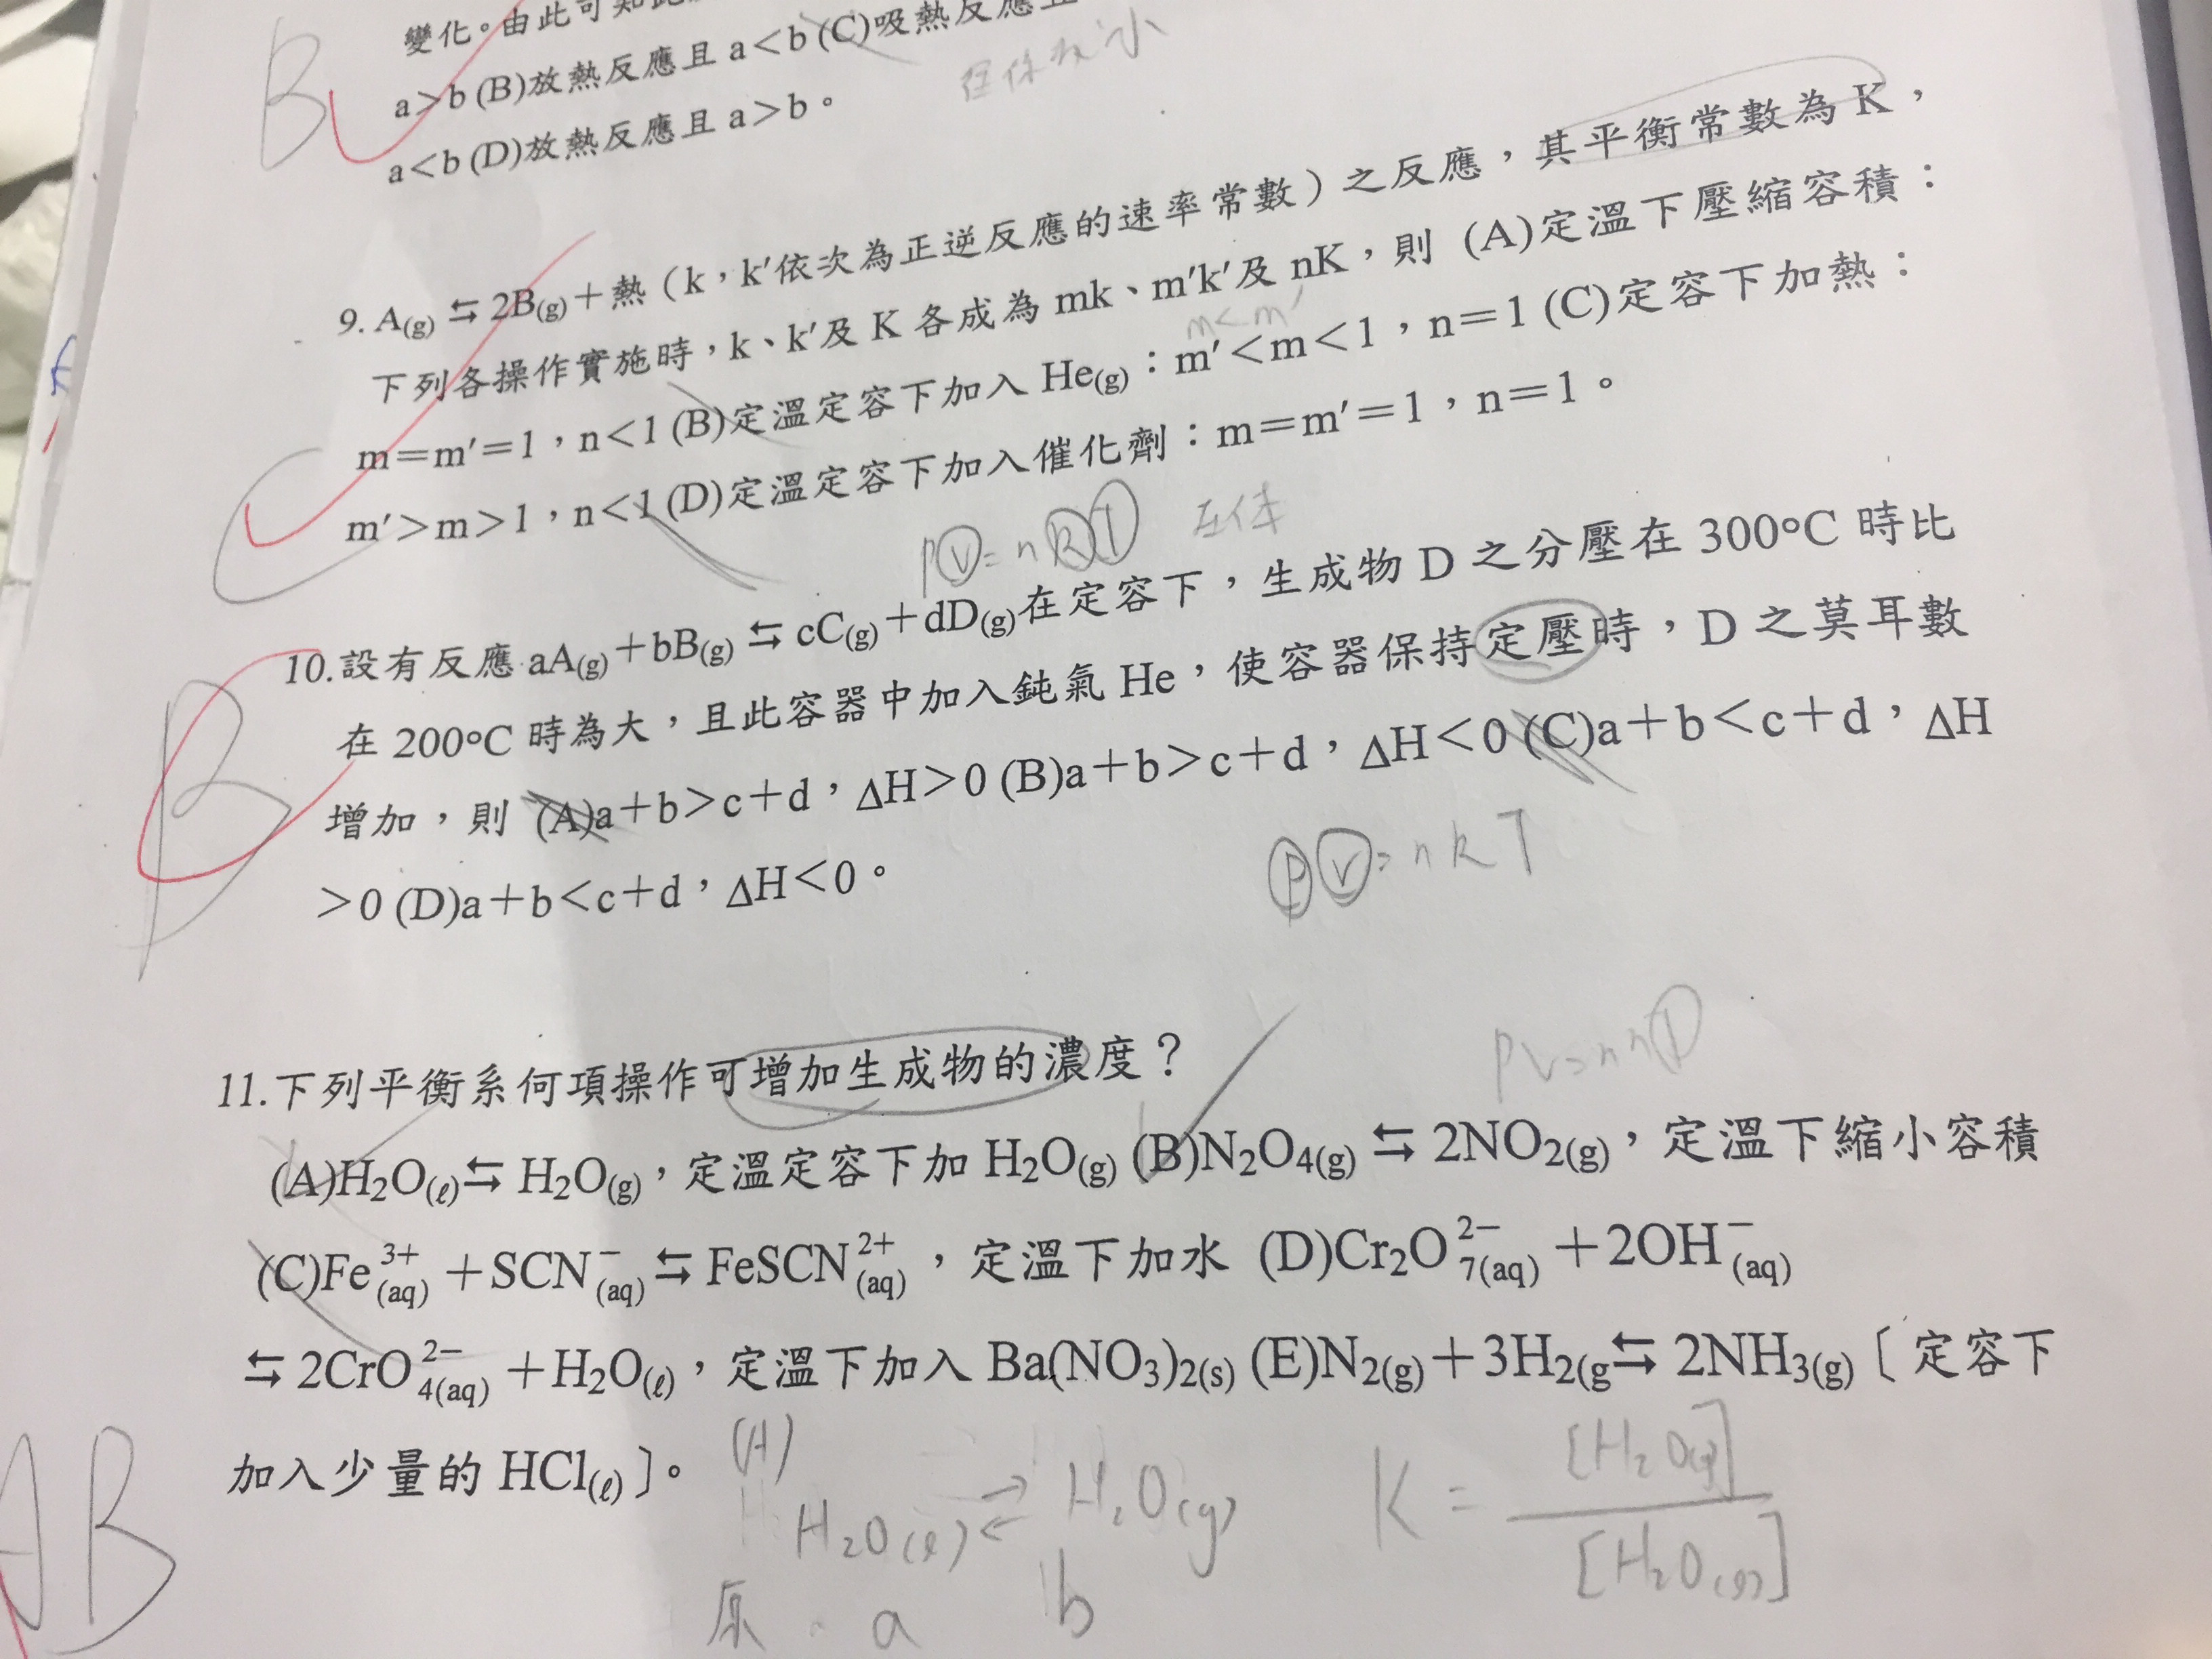 變化。由此可知此
a>b (B)放熱反應且 a<b (C)吸熱反應且
a<b (D)放熱反應且 a>b。
B
9. A(g) ⇆ 2B(g)+熱（k，k′依次為正逆反應的速率常數）之反應，其平衡常數為 K，
下列各操作實施時，k、k′及 K 各成為 mk、m′k′及 nK，則 (A)定溫下壓縮容積：
m<m′
m=m′=1，n<1 (B)定溫定容下加入 He(g)：m′<m<1，n=1 (C)定容下加熱：
m′>m>1，n<1 (D)定溫定容下加入催化劑：m=m′=1，n=1。
C
PV=nRT
10.設有反應 aA(g)+bB(g) ⇆ cC(g)+dD(g)在定容下，生成物 D 之分壓在 300°C 時比
在 200°C 時為大，且此容器中加入鈍氣 He，使容器保持定壓時，D 之莫耳數
增加，則 (A)a+b>c+d，ΔH>0 (B)a+b>c+d，ΔH<0 (C)a+b<c+d，ΔH
>0 (D)a+b<c+d，ΔH<0。
B
PV=nRT
11.下列平衡系何項操作可增加生成物的濃度？
(A)H2O(ℓ)⇆ H2O(g)，定溫定容下加 H2O(g) (B)N2O4(g) ⇆ 2NO2(g)，定溫下縮小容積
(C)Fe3+(aq) +SCN−(aq)⇆ FeSCN2+(aq)，定溫下加水 (D)Cr2O72−(aq) +2OH−(aq)
⇆ 2CrO42−(aq) +H2O(ℓ)，定溫下加入 Ba(NO3)2(s) (E)N2(g)+3H2(g⇆ 2NH3(g)〔定容下
加入少量的 HCl(ℓ)〕。
AB
(A)
H2O(ℓ) ⇌ H2O(g) K = [H2O(g)] / [H2O(ℓ)]
原 a b